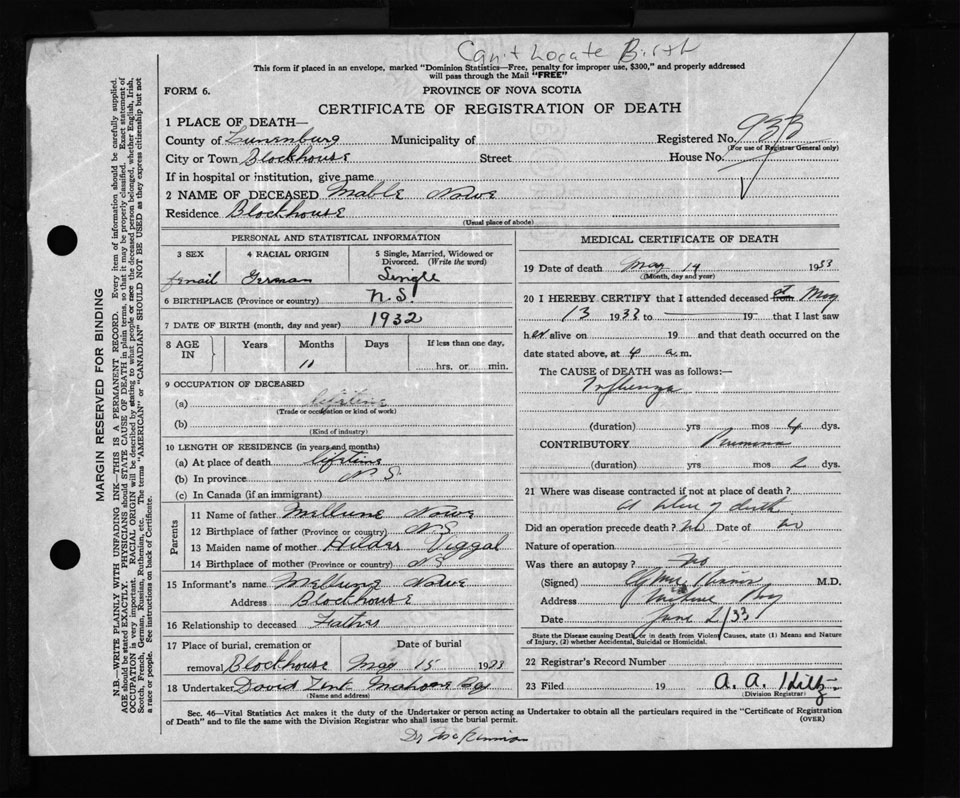 Can't Locate Birth
This form if placed in an envelope, marked "Dominion Statistics—Free, penalty for improper use, $300," and properly addressed
will pass through the Mail "FREE"
FORM 6.
PROVINCE OF NOVA SCOTIA
CERTIFICATE OF REGISTRATION OF DEATH
1 PLACE OF DEATH—
County of Lunenburg Municipality of Registered No. 933
(For use of Registrar General only)
City or Town Blockhouse Street House No.
If in hospital or institution, give name
2 NAME OF DECEASED Mable Nowe
Residence Blockhouse
(Usual place of abode)
PERSONAL AND STATISTICAL INFORMATION
3 SEX 4 RACIAL ORIGIN 5 Single, Married, Widowed or Divorced. (Write the word)
femail German Single
6 BIRTHPLACE (Province or country) N.S.
7 DATE OF BIRTH (month, day and year) 1932
8 AGE IN Years Months Days If less than one day,
10 hrs. or min.
9 OCCUPATION OF DECEASED
(a) lifetime
(Trade or occupation or kind of work)
(b)
(Kind of industry)
10 LENGTH OF RESIDENCE (in years and months)
(a) At place of death lifetime
(b) In province N S
(c) In Canada (if an immigrant)
Parents
11 Name of father Nowe
12 Birthplace of father (Province or country) NS
13 Maiden name of mother Hilda
14 Birthplace of mother (Province or country) NS
15 Informant's name Nowe
Address Blockhouse
16 Relationship to deceased Father
17 Place of burial, cremation or Date of burial
removal Blockhouse May 15 1933
18 Undertaker David Mahone Bay
(Name and address)
MEDICAL CERTIFICATE OF DEATH
19 Date of death May 14 1933
(Month, day and year)
20 I HEREBY CERTIFY that I attended deceased from at May
13 1933 to 19 that I last saw
her alive on 19 and that death occurred on the
date stated above, at 4 a.m.
The CAUSE of DEATH was as follows:—
Influenza
(duration) yrs mos 4 dys.
CONTRIBUTORY
(duration) yrs mos 2 dys.
21 Where was disease contracted if not at place of death?
At place of death
Did an operation precede death? no Date of no
Nature of operation
Was there an autopsy? no
(Signed) M.D.
Address
Date June 2/33
State the Disease causing Death, or in death from Violent Causes, state (1) Means and Nature
of Injury, (2) whether Accidental, Suicidal or Homicidal.
22 Registrar's Record Number
23 Filed 19 A. A. Hiltz
(Division Registrar)
Sec. 46—Vital Statistics Act makes it the duty of the Undertaker or person acting as Undertaker to obtain all the particulars required in the "Certificate of Registration
of Death" and to file the same with the Division Registrar who shall issue the burial permit.
(OVER)
Dr
MARGIN RESERVED FOR BINDING
N.B.—WRITE PLAINLY WITH UNFADING INK—THIS IS A PERMANENT RECORD. Every item of information should be carefully supplied.
AGE should be stated EXACTLY. PHYSICIANS should STATE CAUSE OF DEATH in plain terms, so that it may be properly classified. Exact statement of
OCCUPATION is very important. RACIAL ORIGIN will be described by stating to what people or race the deceased person belonged, whether English, Irish,
Scotch, French, German, Russian, Ruthenian, etc. The terms "AMERICAN" or "CANADIAN" SHOULD NOT BE USED as they express citizenship but not
a race or people. See instructions on back of Certificate.